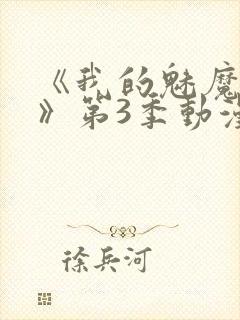 《我的魅魔
》第3季動漫
徐兵河